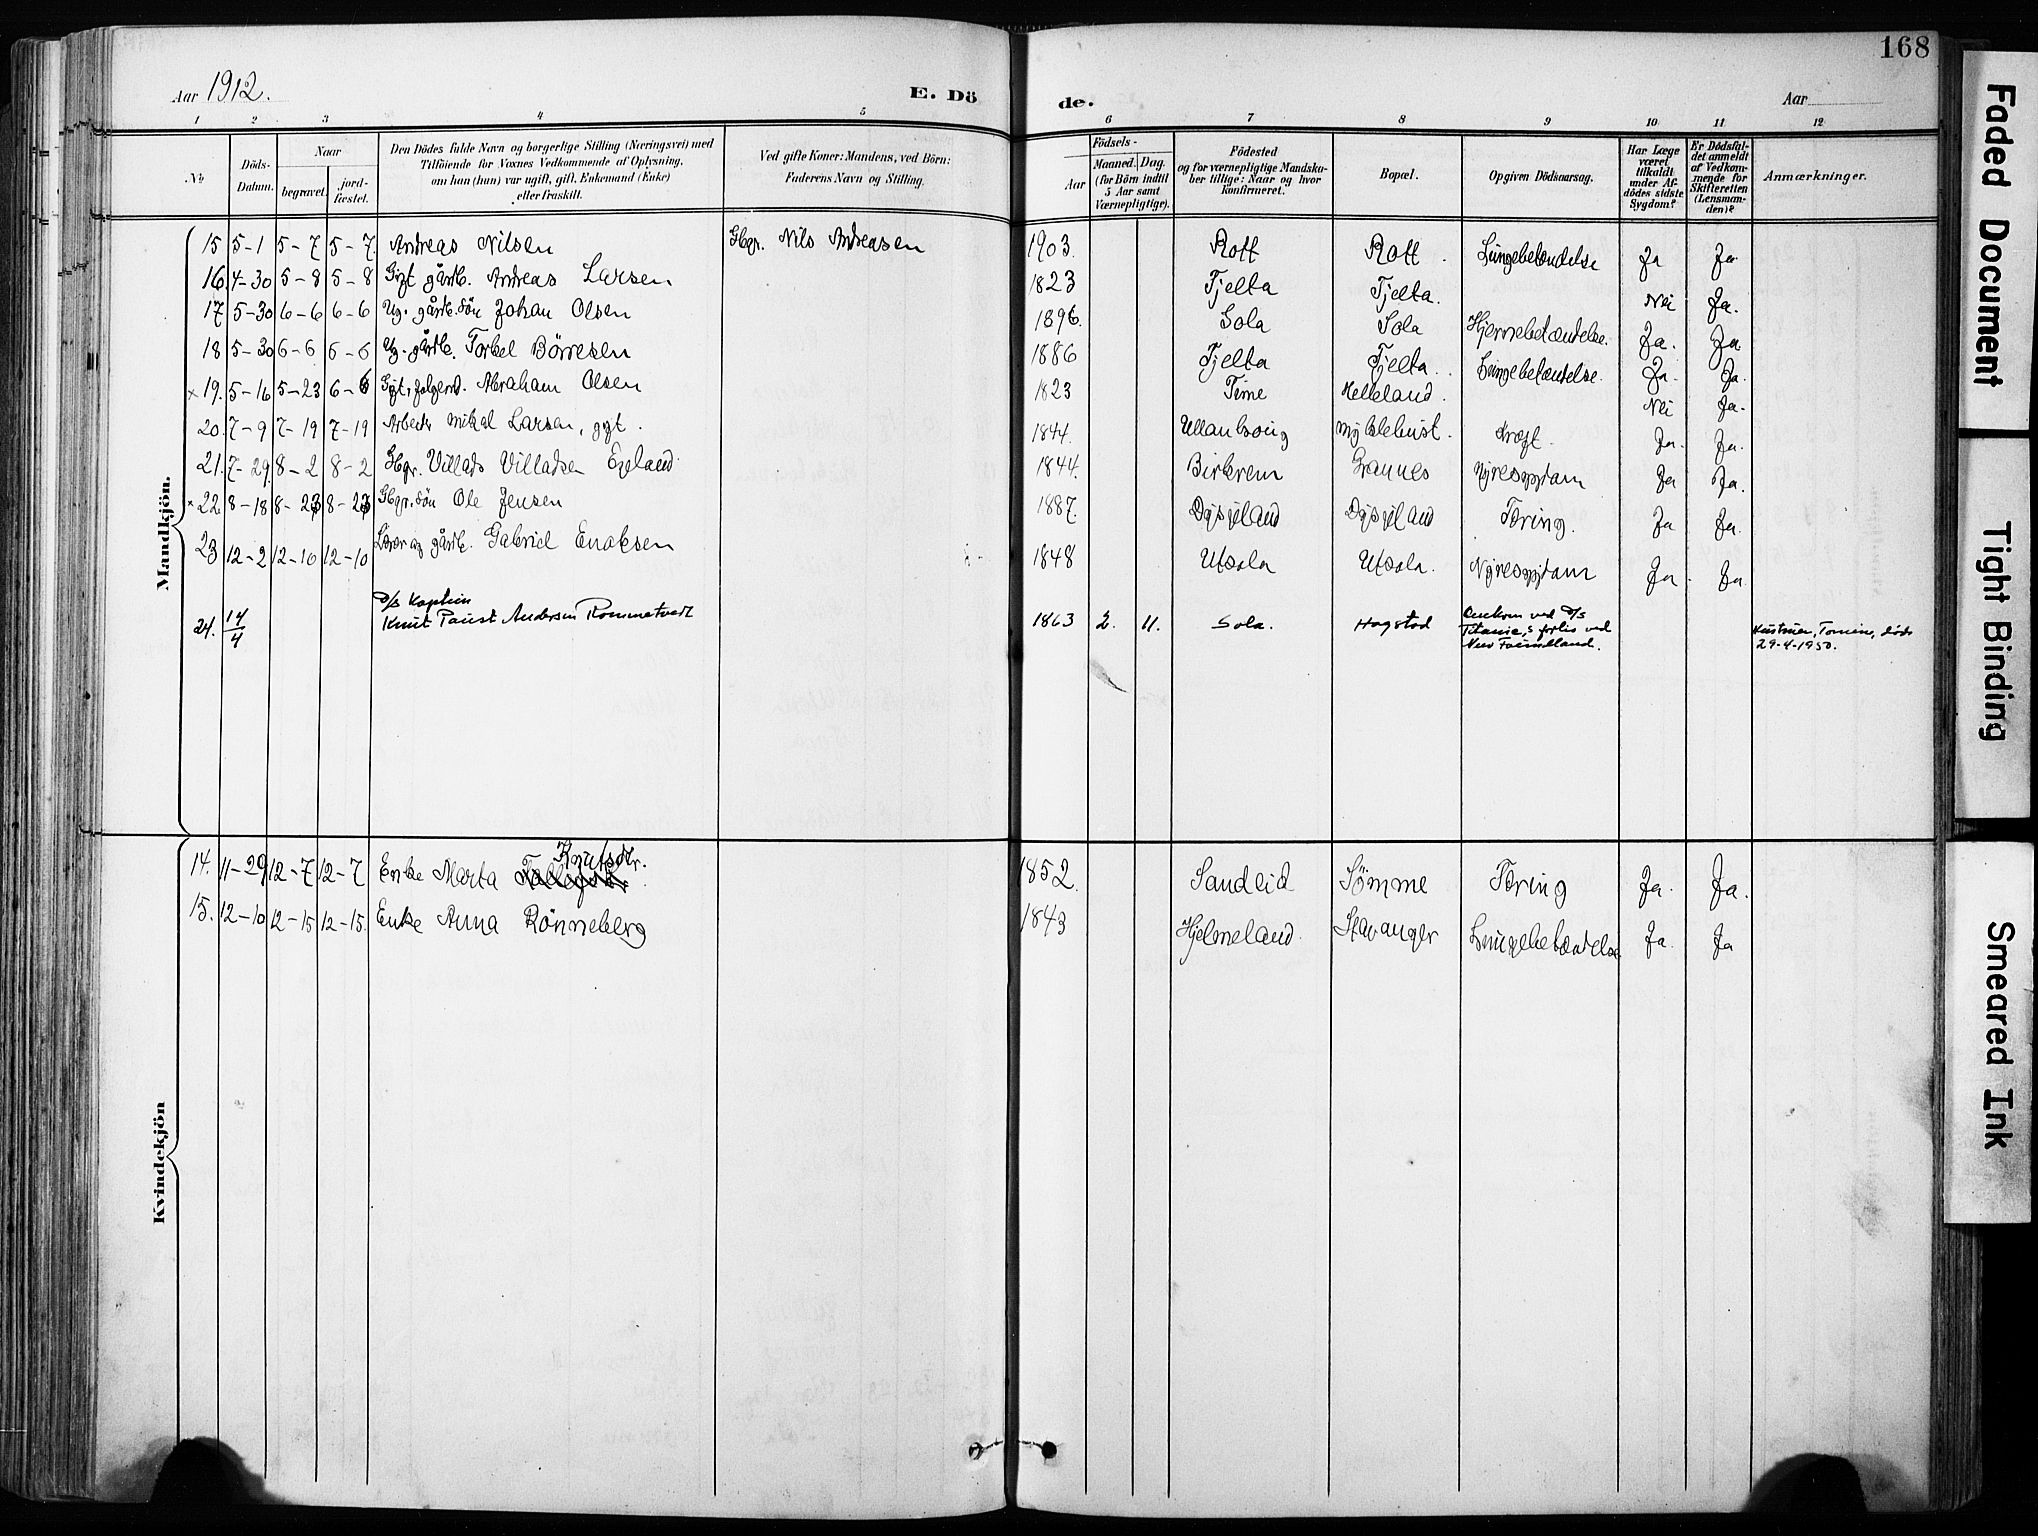 168
Aar 1912.
E. Dö
de.
Aar
1 2 3 4 5 6 7 8 9 10 11 12
No
Döds-Datum.
Naar
begravet.
jord-fæstet.
Den Dödes fulde Navn og borgerlige Stilling (Næringsvei) med
Tilföiende for Voxnes Vedkommende af Oplysning,
om han (hun) var ugift, gift, Enkemand (Enke)
eller fraskilt.
Ved gifte Koner: Mandens, ved Börn:
Faderens Navn og Stilling.
Födsels-
Aar
Maaned. Dag.
(for Börn indtil
5 Aar samt
Værnepligtige).
Födested
og for værnepligtige Mandska-
ber tillige: Naar og hvor
konfirmeret.
Bopæl.
Opgiven Dödsaarsag.
Har Læge
været
tilkaldt
under Af-
dödes sidste
Sygdom?
Er Dödsfal-
det anmeldt
af Vedkom-
mende for
Skifteretten
(Lensman-
den)?
Anmærkninger.
Mandkjön.
15 5-1 5-7 5-7 Andreas Nilsen Gbgr. Nils Andreasen 1903. Rott Rott. Lungebetændelse Ja Ja
16. 4-30 5-8 5-8 Gift gårdb. Andreas Larsen 1823 Tjelta Tjelta. Nei Ja.
17 5-30 6-6 6-6 Ug. gårdb. sön Johan Olsen 1896. Sola Sola Hjernebetændelse. Ja. Ja
18 5-30 6-6 6-6 Ug. gårdb. Torkel Börresen 1886 Tjelta Tjelta. Lungebetændelse. Ja. Ja.
×19. 5-16 5-23 6-6 Abraham Olsen 1823 Time Helleland. Nei Ja.
20. 7-9 7-19 7-19 Arbeider Mikal Larsen, gift. 1844. Myklebust. Kræft. Ja. Ja.
21. 7-29. 8-2 8-2 Gbgr. Villads Villadsen Egeland 1844. Birkrem Grannes Nyresygdam Ja Ja.
×22 8-18 8-23 8-23 Gbgr. sön Ole Jensen 1887. Dysjeland Dysjeland Tæring. Ja Ja.
23 12-2 12-10 12-10 Lærer og gårdb. Gabriel Enoksen 1848 Utsola Utsola. Nyresygdam Ja. Ja.
24. 14/4 D/S Kaptein
Knut Paust Andersen Rommetvedt 1863 2. 11. Sola. Hogstad Omkom ved D/S
Titanic,s forlis ved
New Foundland.
Hustruen, Tomine, döde
29-4-1950.
Kvindekjön
14. 11-29 12-7 12-7 Enke Marta Knutsdtr. 1852. Sandeid Sömme Tæring Ja. Ja.
15. 12-10 12-15 12-15. Enke Anna Rönneberg 1843 Hjelmeland Stavanger Lungebetændelse Ja. Ja
Faded Document
Tight Binding
Smeared Ink